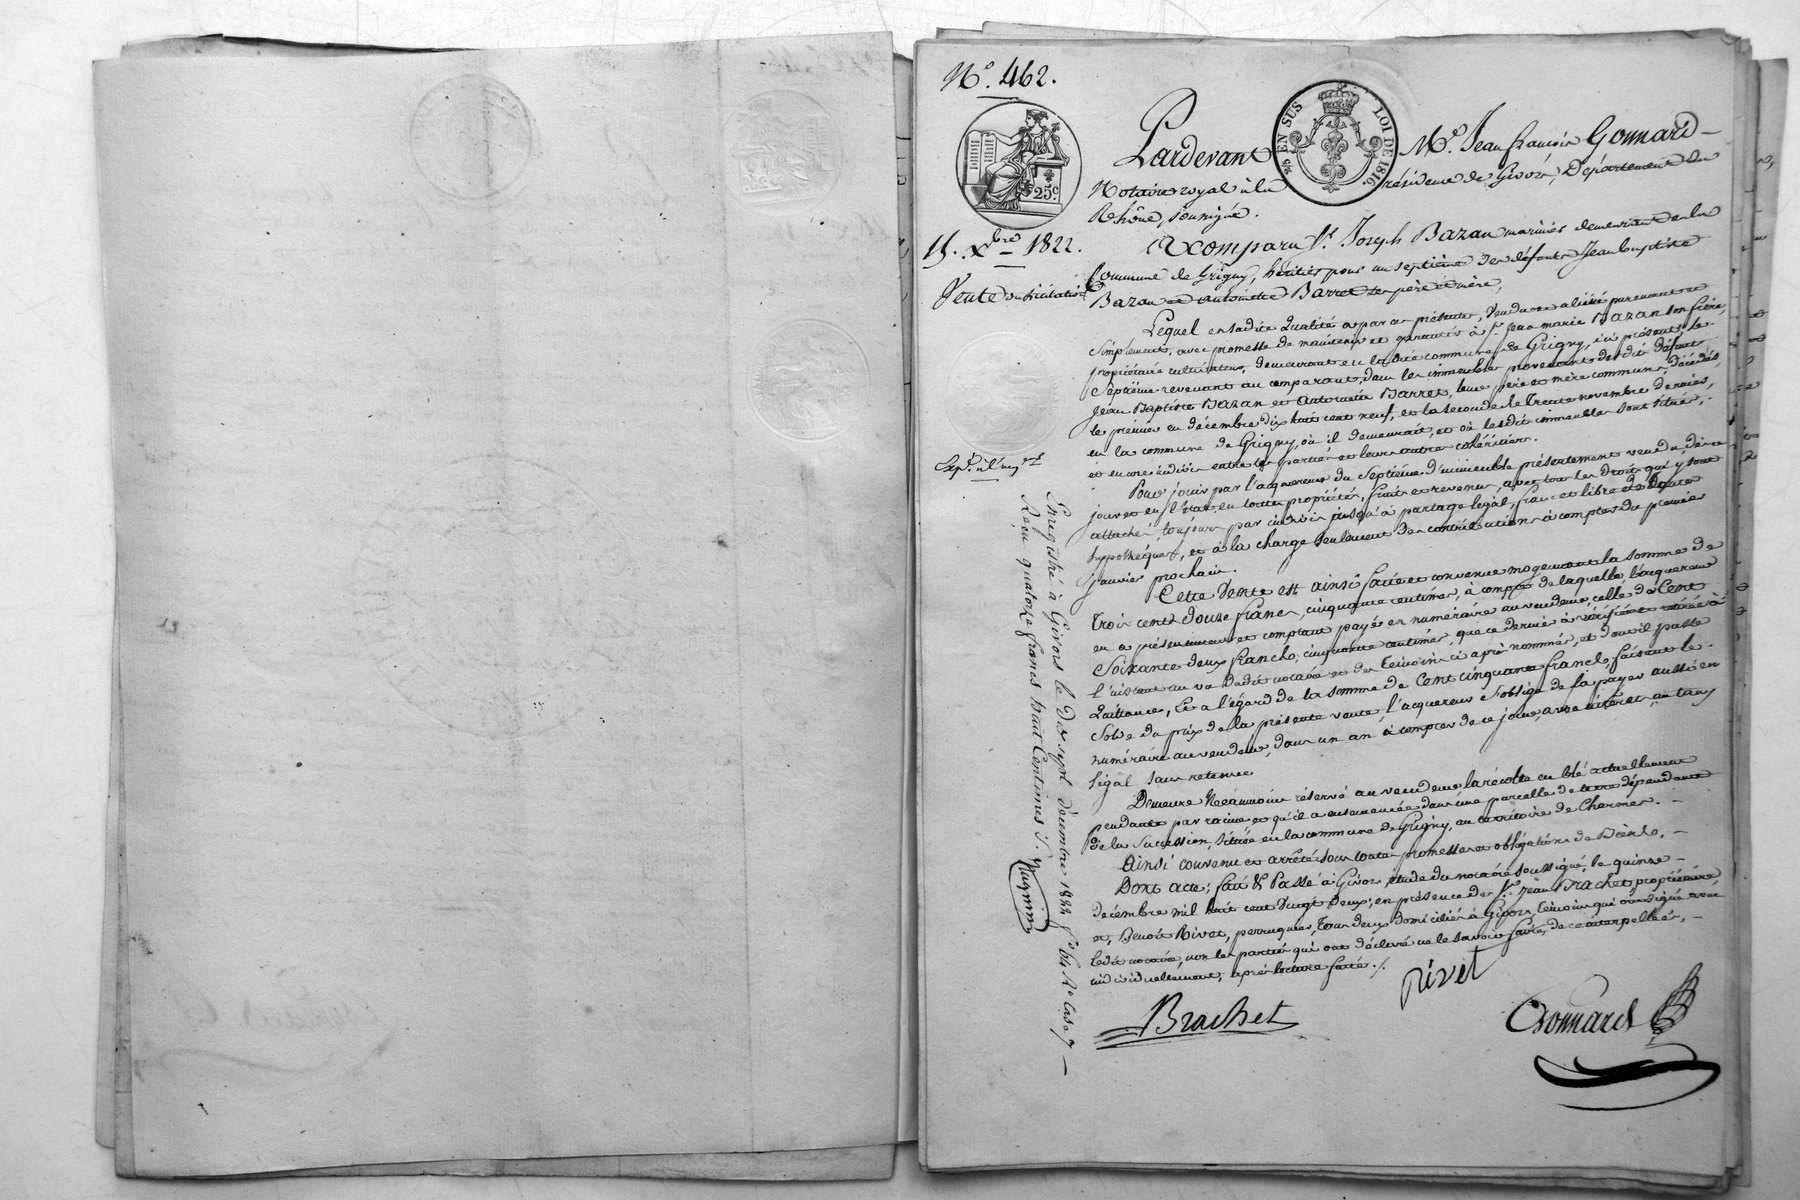 N.º 462.
25c.
2/5 EN SUS LOI DE 1816.
15. Xbre 1822.
Vente ou licitation
Expé. à l'acqr.
Pardevant Me. Jean françois Gonnard
Notaire royal à la résidence de Givors, Département du
Rhône, soussigné.
A comparu Sr. Joseph Bazan marinier demeurant en la
Commune de Grigny, héritier pour un septième des défunts Jean baptiste
Bazan et antoinette Barret ses père et mère,
Lequel en sadite qualité a par ces présentes, vendu et aliéné purement et
simplement, avec promesse de maintenir et garantir à Sr. jean marie Bazan son frère,
propriétaire cultivateur, demeurant en ladite commune de Grigny, ici présent, le
Septième revenant au comparant, dans les immeubles provenants desdits défunts
Jean Baptiste Bazan et antoinette Barret, leurs père et mère communs, décédés
le premier en décembre dix huit cent neuf, et la seconde le Trente novembre dernier,
en la commune de Grigny, où il demeurait, et où lesdits immeubles sont situés,
et encore indivis entre les parties et leurs autres cohéritiers.
Pour jouir par l'acquereur du Septième d'immeuble présentement vendu dès ce
jour et en l'état, en toutes propriétés, fruits et revenus, avec tous les droits qui y sont
attachés, toujours par indivis jusqu'à partage légal, franc et libre de toutes
hypothèques, et à la charge seulement des contributions à compter du premier
janvier prochain.
Cette Vente est ainsi faite et convenue moyennant la somme de
Trois cents douze francs, cinquante centimes, à compte de laquelle, l'acquereur
en a présentement et comptant payé en numéraire au vendeur, celle de Cent
Soixante deux francs, cinquante centimes, que ce dernier a vérifiée et retirée à
l'instant au vu dudit notaire et des témoins ci après nommés, et dont il passe
Quittance, Et à l'égard de la somme de Cent cinquante francs, faisant le
Solde du prix de la présente vente, l'acquereur s'oblige de la payer aussi en
numéraire au vendeur, dans un an à compter de ce jour, avec intérêt au taux
légal sans retenue
Demeure Néanmoins réservé au vendeur la récolte en blé actuellement
pendante par racine et qu'il a ensemencée dans une parcelle de terre dépendante
de la Succession, située en la commune de Grigny, au territoire de Charmes.
Ainsi convenu et arrêté sous toutes promesses et obligations de Biens,
Dont acte; fait & Passé à Givors étude du notaire soussigné, le quinze
décembre mil huit cent vingt deux; en présence des Srs. Jean Brachet propriétaire,
et, Benoit Rivet, perruquier, tous deux domiciliés à Givors, témoins qui ont signé avec
ledit notaire, non les parties qui ont déclaré ne le savoir faire, de ce interpellées,
individuellement, après lecture faite./.
Rivet
Brachet
Gonnard
Enregistré à Givors le dix sept décembre 1822 fo. 64 Ro. Case 7
Reçu quatorze francs huit Centimes S.